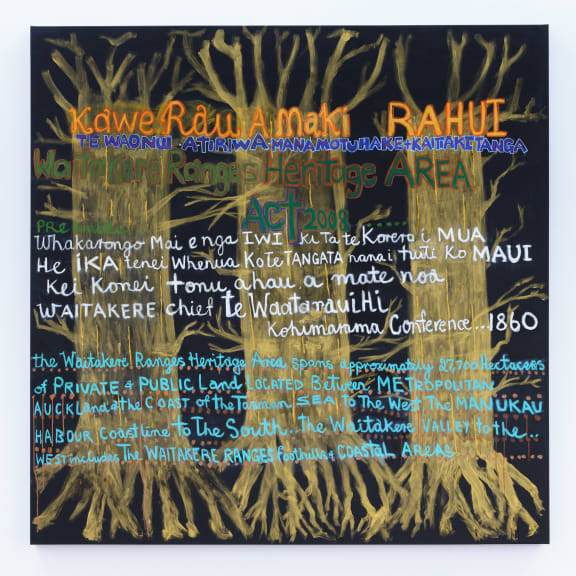 Kawe Rau A Maki RAHUI
TE WAO NUI · A TIRIWA MANA MOTUHAKE + KAITIAKITANGA
Waitakere Ranges Heritage AREA
ACT 2008
Whakarongo Mai e nga IWI ki Ta te Korero i MUA
He IKA tenei Whenua Ko te TANGATA nana i huti Ko MAUI
Kei Konei tonu ahau a mate noa
WAITAKERE chief te Waatarauihi
Kohimarama Conference...1860
the Waitakere Ranges Heritage Area spans approximately 27,700 Hectacres
of PRIVATE + PUBLIC Land LOCATED Between METROPOLITAN
AUCKLand & the COAST of the Tasman SEA To The West The MANUKAU
HABOUR Coastline to The South... The Waitakere VALLEY to the..
WEST includes The WAITAKERE RANGES foothills + COASTAL AREAS